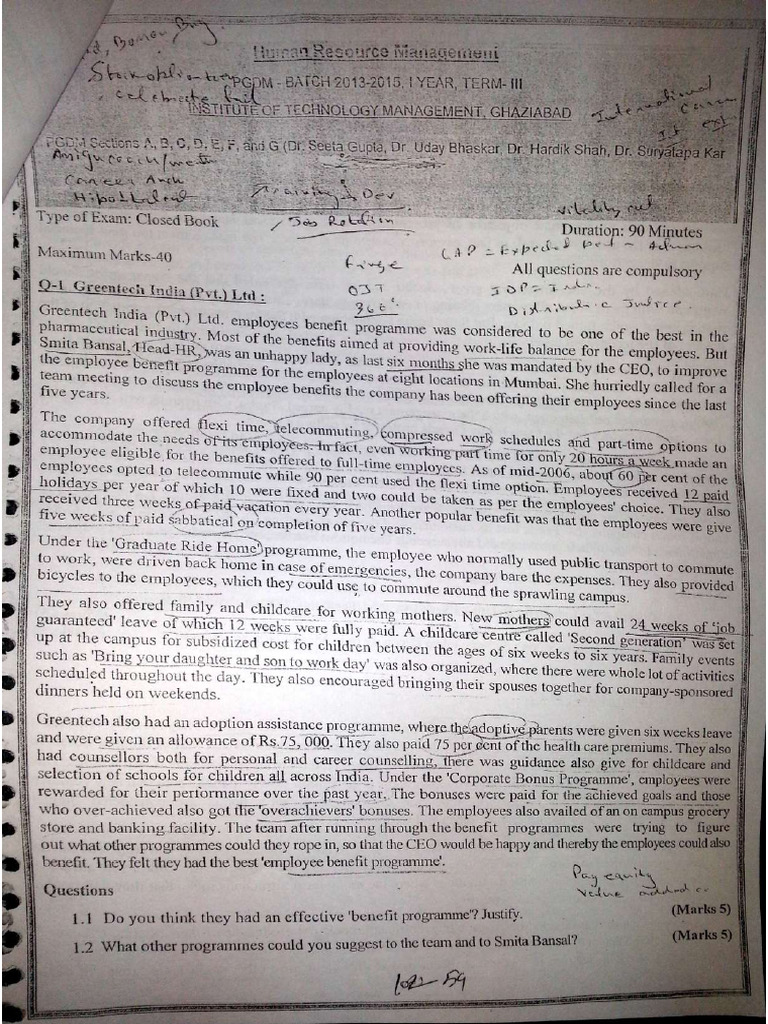 Human Resource Management
PGDM - BATCH 2013-2015, I YEAR, TERM- III
INSTITUTE OF TECHNOLOGY MANAGEMENT, GHAZIABAD
International
PGDM Sections A, B, C, D, E, F, and G (Dr. Seeta Gupta, Dr. Uday Bhaskar, Dr. Hardik Shah, Dr. Suryatapa Kar
Training & Dev
Type of Exam: Closed Book
Job Rotation
Duration: 90 Minutes
Maximum Marks-40
Fringe
GAP = Expected perf -
All questions are compulsory
OJT
360°
Distributive Justice
Q-1 Greentech India (Pvt.) Ltd :
Greentech India (Pvt.) Ltd. employees benefit programme was considered to be one of the best in the
pharmaceutical industry. Most of the benefits aimed at providing work-life balance for the employees. But
Smita Bansal, Head-HR, was an unhappy lady, as last six months she was mandated by the CEO, to improve
the employee benefit programme for the employees at eight locations in Mumbai. She hurriedly called for a
team meeting to discuss the employee benefits the company has been offering their employees since the last
five years.
The company offered flexi time, telecommuting, compressed work schedules and part-time options to
accommodate the needs of its employees. In fact, even working part time for only 20 hours a week made an
employee eligible for the benefits offered to full-time employees. As of mid-2006, about 60 per cent of the
employees opted to telecommute while 90 per cent used the flexi time option. Employees received 12 paid
holidays per year of which 10 were fixed and two could be taken as per the employees' choice. They also
received three weeks of paid vacation every year. Another popular benefit was that the employees were give
five weeks of paid sabbatical on completion of five years.
Under the 'Graduate Ride Home' programme, the employee who normally used public transport to commute
to work, were driven back home in case of emergencies, the company bare the expenses. They also provided
bicycles to the employees, which they could use to commute around the sprawling campus.
They also offered family and childcare for working mothers. New mothers could avail 24 weeks of 'job
guaranteed' leave of which 12 weeks were fully paid. A childcare centre called 'Second generation' was set
up at the campus for subsidized cost for children between the ages of six weeks to six years. Family events
such as 'Bring your daughter and son to work day' was also organized, where there were whole lot of activities
scheduled throughout the day. They also encouraged bringing their spouses together for company-sponsored
dinners held on weekends.
Greentech also had an adoption assistance programme, where the adoptive parents were given six weeks leave
and were given an allowance of Rs.75, 000. They also paid 75 per cent of the health care premiums. They also
had counsellors both for personal and career counselling, there was guidance also give for childcare and
selection of schools for children all across India. Under the 'Corporate Bonus Programme', employees were
rewarded for their performance over the past year. The bonuses were paid for the achieved goals and those
who over-achieved also got the 'overachievers' bonuses. The employees also availed of an on campus grocery
store and banking facility. The team after running through the benefit programmes were trying to figure
out what other programmes could they rope in, so that the CEO would be happy and thereby the employees could also
benefit. They felt they had the best 'employee benefit programme'.
Pay equity
Questions
1.1 Do you think they had an effective 'benefit programme'? Justify. (Marks 5)
1.2 What other programmes could you suggest to the team and to Smita Bansal? (Marks 5)